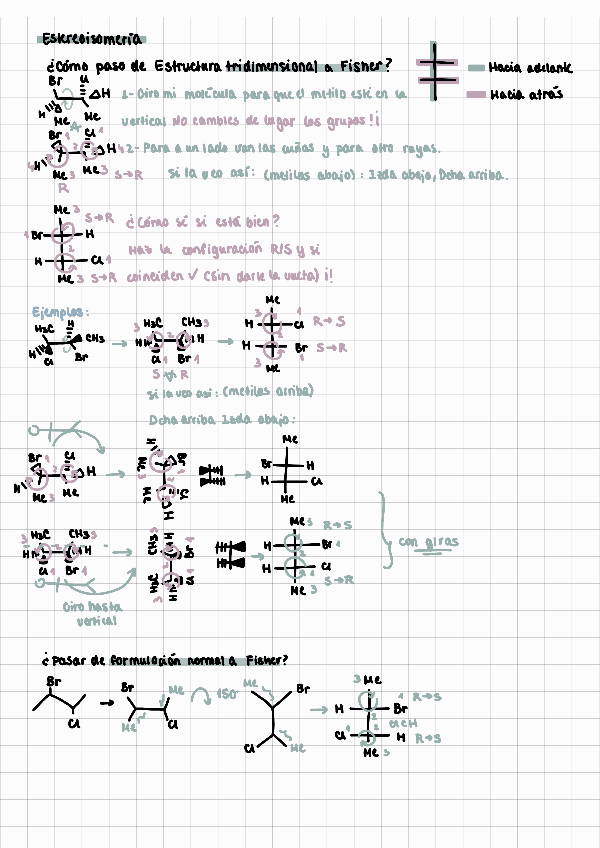 Estereoisomería
¿Cómo paso de Estructura tridimensional a Fisher?
Hacia adelante
Hacia atrás
Br Cl
H
H Me Me
1- Giro mi molécula para que el metilo esté en la
vertical No cambies de lugar los grupos!¡
Br Cl
H
H Me 3 Me 3 S→R
R
2- Para a un lado van las cuñas y para otro rayas.
Si la veo así: (metilos abajo): Izda abajo, Dcha arriba.
Me 3 S→R
Br H
H Cl
Me 3 S→R
¿Cómo sé si está bien?
Haz la configuración R/S y si
coinciden ✓ (Sin darle la vuelta) ¡!
Ejemplos:
H3C H
CH3
H
Cl Br
H3C CH3
H H
Cl Br
S R
Me
H Cl R→S
H Br S→R
Me
si la veo así: (metilos arriba)
Dcha arriba Izda abajo:
Br Cl
H
H Me 3 Me 3
H Br
Me
Me Cl
H
Me
Br H
H Cl
Me
H3C CH3
H H
Cl Br
CH3 H
Br
H3C Cl
H
Me 3 R→S
H Br
H Cl
Me 3 S→R
con giros
Giro hasta
vertical
¿Pasar de formulación normal a Fisher?
Br
Cl
Br Me
Me Cl
180°
Me Br
Cl Me
3 Me
H Br R→S
Cl C H
Cl H R→S
Me 3